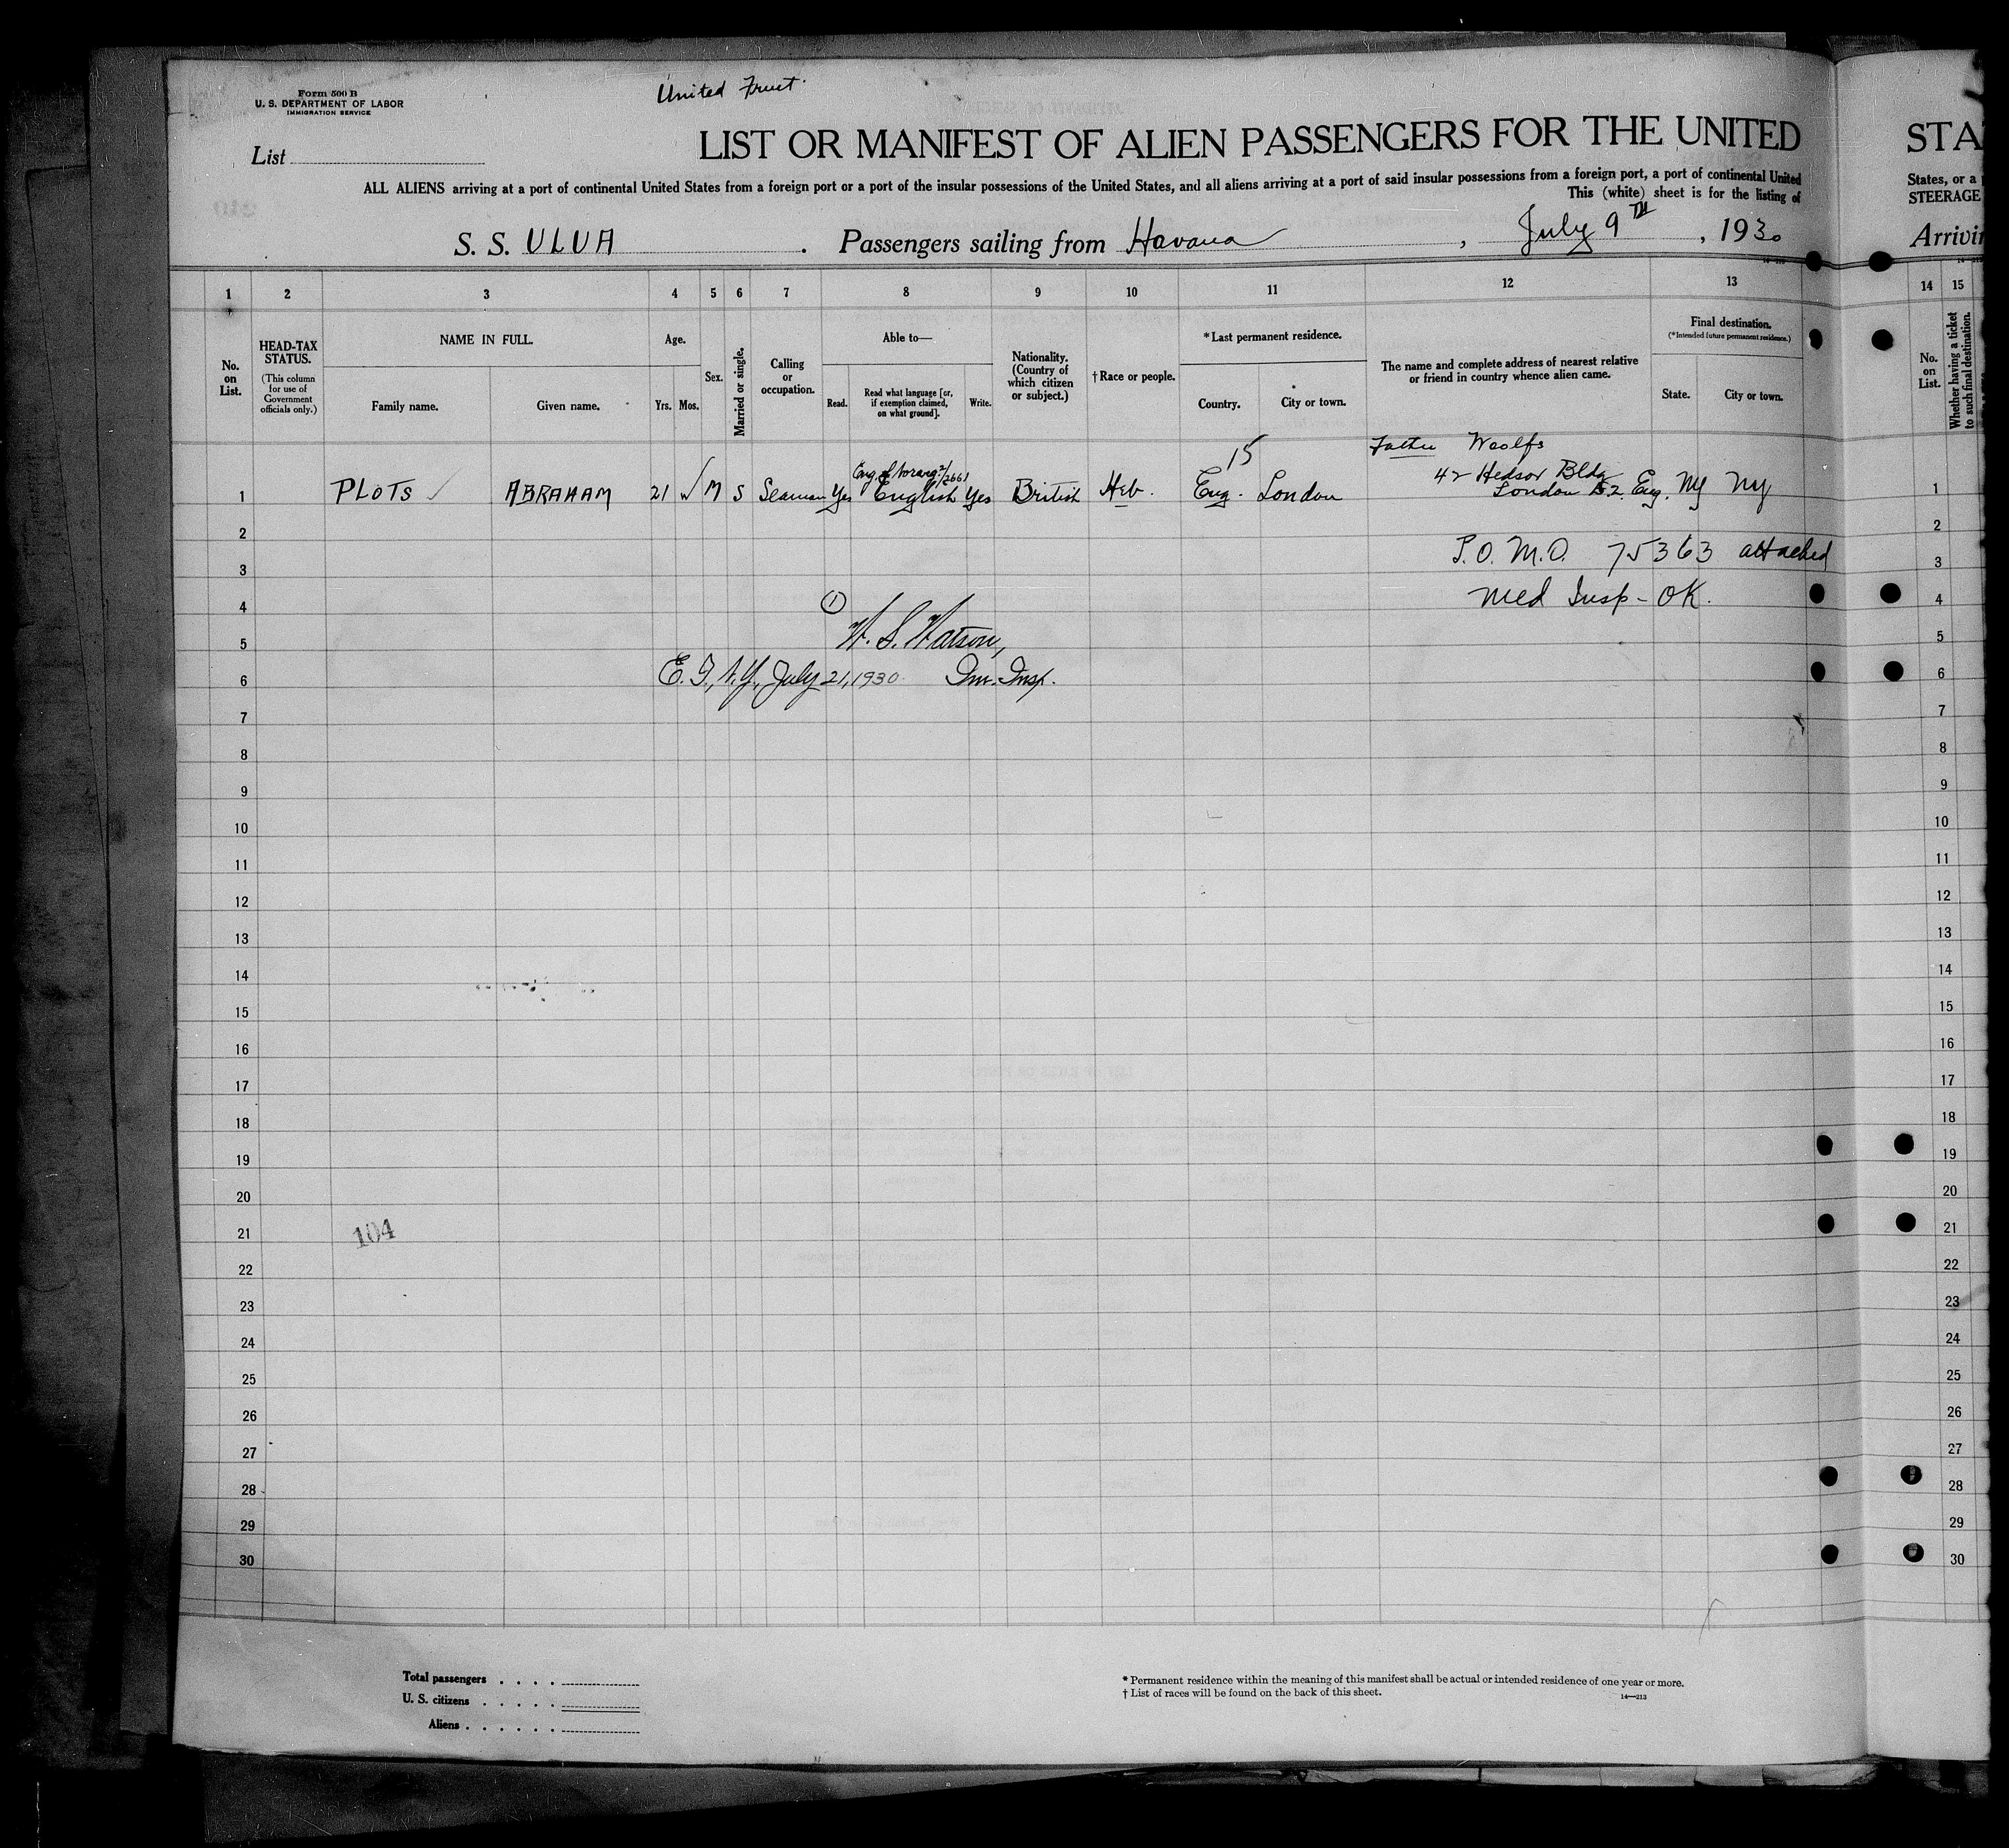 Form 500 B
U. S. DEPARTMENT OF LABOR
IMMIGRATION SERVICE
United Fruit.
List
LIST OR MANIFEST OF ALIEN PASSENGERS FOR THE UNITED
STA
ALL ALIENS arriving at a port of continental United States from a foreign port or a port of the insular possessions of the United States, and all aliens arriving at a port of said insular possessions from a foreign port, a port of continental United
States, or a
This (white) sheet is for the listing of
STEERAGE
S. S. ULUA . Passengers sailing from Havana , July 9TH , 1930
Arrivin
1 2 3 4 5 6 7 8 9 10 11 12 13 14 15
No. on List.
HEAD-TAX STATUS.
(This column for use of Government officials only.)
NAME IN FULL.
Family name. Given name.
Age.
Yrs. Mos.
Sex.
Married or single.
Calling or occupation.
Able to—
Read. Read what language [or, if exemption claimed, on what ground]. Write.
Nationality. (Country of which citizen or subject.)
† Race or people.
* Last permanent residence.
Country. City or town.
The name and complete address of nearest relative or friend in country whence alien came.
Final destination.
(*Intended future permanent residence.)
State. City or town.
No. on List.
Whether having a ticket to such final destination.
15
Father Woolfs
42 Hedsor Bldg
1 PLOTS ABRAHAM 21 M S Seaman Yes English Yes British Heb. Eng. London London E2. Eng. NY NY 1
2 2
P.O. M.O. 75363 attached
3 3
Med Insp - OK.
4 4
1
W. S. Watson,
5 5
E. I., N.Y., July 21, 1930. Im. Insp.
6 6
7 7
8 8
9 9
10 10
11 11
12 12
13 13
14 14
15 15
16 16
17 17
18 18
19 19
20 20
104
21 21
22 22
23 23
24 24
25 25
26 26
27 27
28 28
29 29
30 30
Total passengers . . . .
U. S. citizens . . . . .
Aliens . . . . . .
* Permanent residence within the meaning of this manifest shall be actual or intended residence of one year or more.
† List of races will be found on the back of this sheet.
14—213